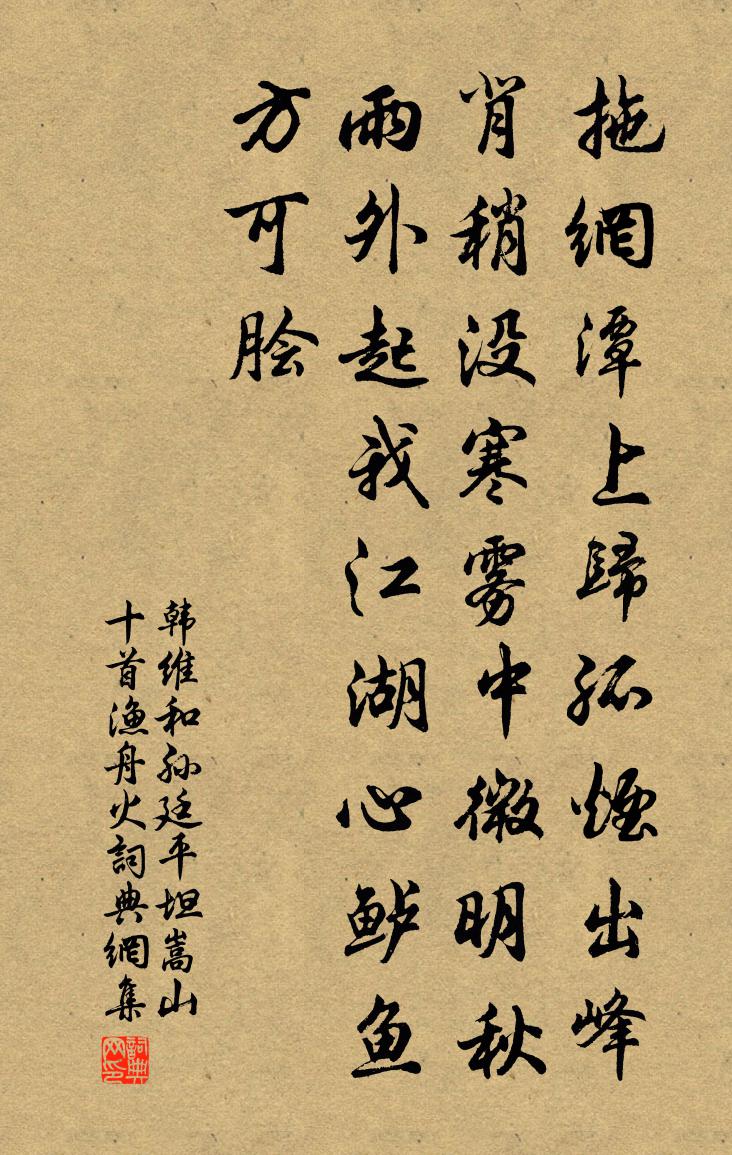 拖網潭上歸孤煙出峰
背稍没寒雾中微明秋
雨外起我江湖心鲈鱼
方可脍
韩维和孙廷平坦嵩山
十首渔舟火詞典網集
詞典网印